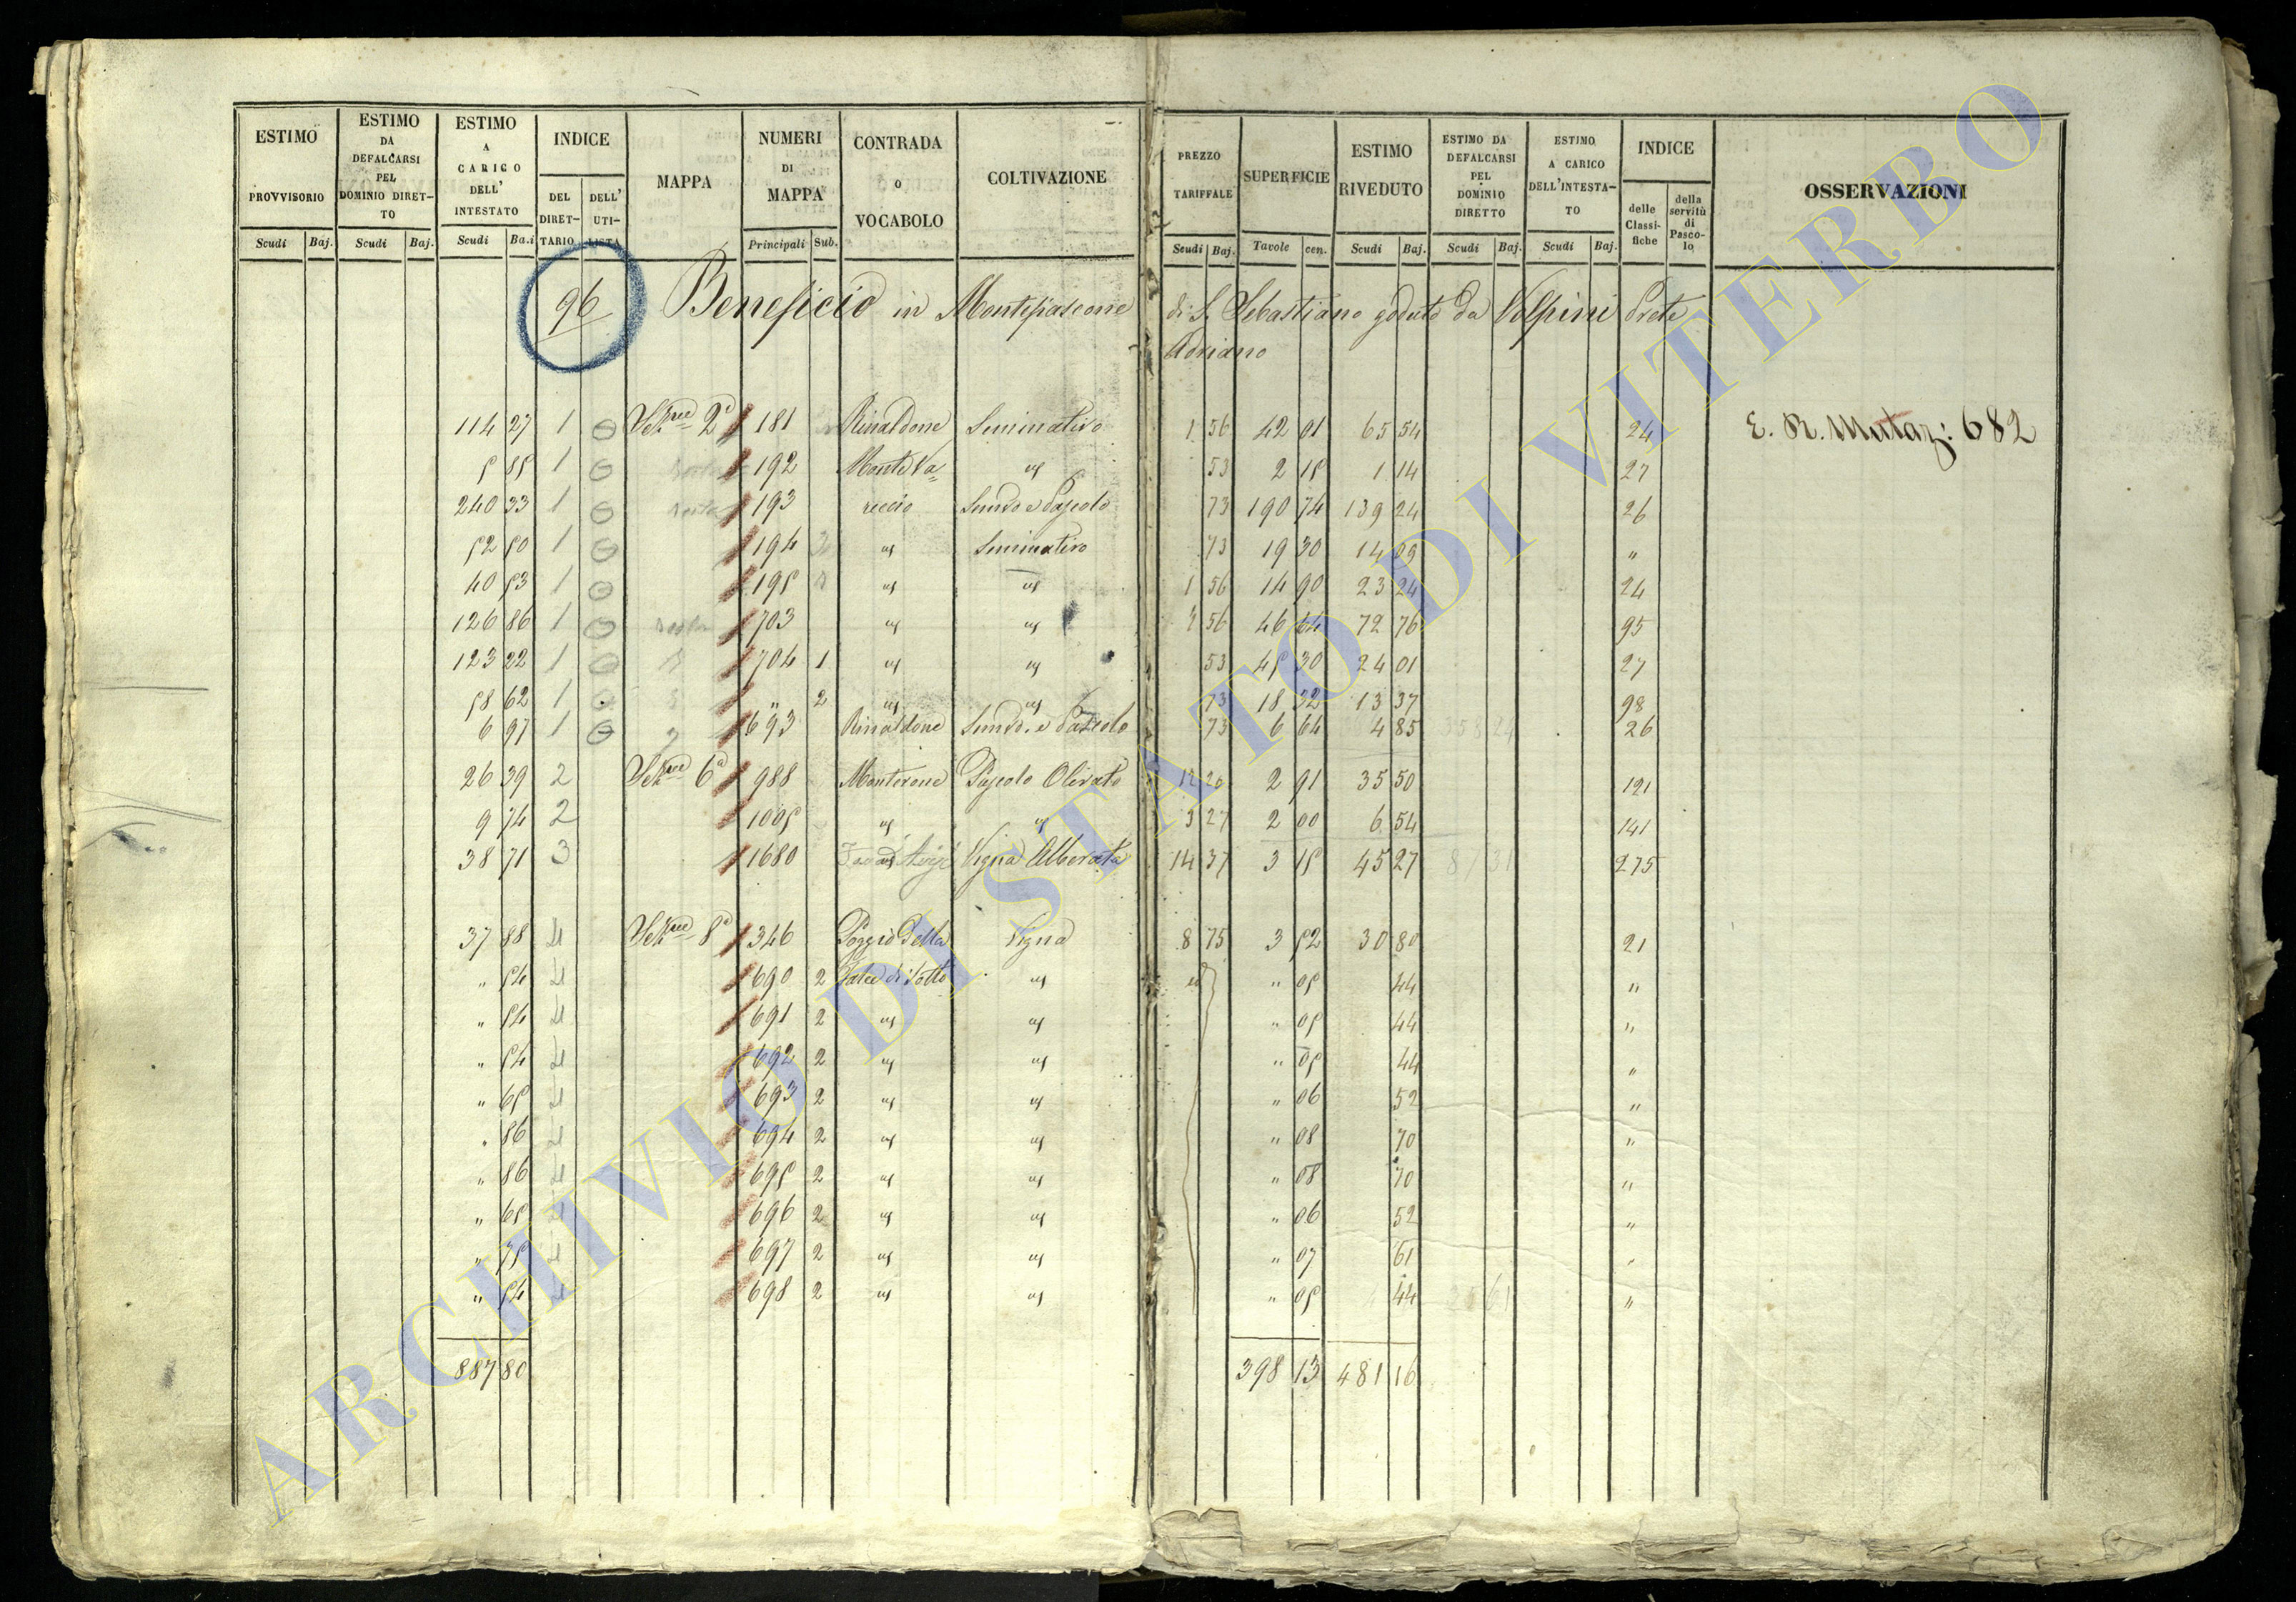 ESTIMO PROVVISORIO Scudi Baj.
ESTIMO DA DEFALCARSI PEL DOMINIO DIRETTO Scudi Baj.
ESTIMO A CARICO DELL' INTESTATO Scudi Ba.i
INDICE DEL DIRETTARIO DELL' UTILISTA
MAPPA
NUMERI DI MAPPA Principali Sub.
CONTRADA O VOCABOLO
COLTIVAZIONE
PREZZO TARIFFALE Scudi Baj.
SUPERFICIE Tavole cen.
ESTIMO RIVEDUTO Scudi Baj.
ESTIMO DA DEFALCARSI PEL DOMINIO DIRETTO Scudi Baj.
ESTIMO A CARICO DELL'INTESTATO Scudi Baj.
INDICE delle Classifiche della servitù di Pascolo
OSSERVAZIONI
96 Beneficio in Montefiascone di S. Sebastiano goduto da Volpini Prete
Adriano
114 27 1 2a 181 Rinaldone Seminativo 1 56 42 01 65 54 24 E. R. Mutaz: 682
5 85 1 192 Monte Va= " 53 2 15 1 14 27
240 33 1 193 reccio Semvo e Pascolo 73 190 74 139 24 26
52 50 1 194 " Seminativo 73 19 30 14 09 "
40 53 1 195 " " 1 56 14 90 23 24 24
126 86 1 703 " " 1 56 46 64 72 76 95
123 22 1 704 1 " " 53 45 30 24 01 27
58 62 1 " 2 " " 73 18 32 13 37 98
6 97 1 693 Rinaldone Semvo. e Pascolo 73 6 64 4 85 26
26 39 2 6a 988 Monterone Pascolo Olivato 12 20 2 91 35 50 121
9 74 2 1095 " " 3 27 2 00 6 54 141
38 71 3 1680 Vigna Alberata 14 37 3 15 45 27 275
37 88 4 8a 346 Poggio della Vigna 8 75 3 52 30 80 21
" 54 4 690 2 di Sotto " " " 05 44 "
" 54 4 691 2 " " " 05 44 "
" 54 4 692 2 " " " 05 44 "
" 65 4 693 2 " " " 06 52 "
" 86 4 694 2 " " " 08 70 "
" 86 4 695 2 " " " 08 70 "
" 65 4 696 2 " " " 06 52 "
" 75 4 697 2 " " " 07 61 "
" 54 4 698 2 " " " 05 44 "
887 80 398 13 481 16
ARCHIVIO DI STATO DI VITERBO